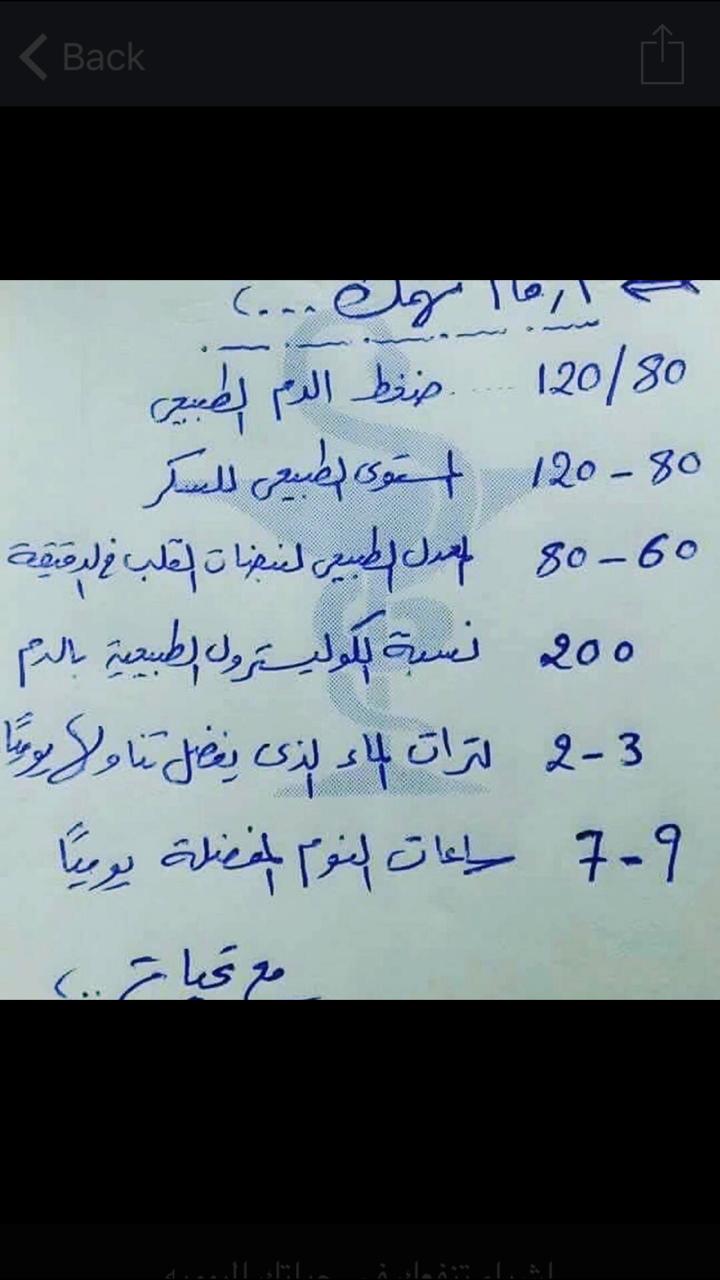 Back
أرقام تهمك ...
120/80 .... ضغط الدم الطبيعي
120-80 المستوى الطبيعي للسكر
80-60 المعدل الطبيعي لنبضات القلب في الدقيقة
200 نسبة الكوليسترول الطبيعية بالدم
2-3 لترات الماء الذى يفضل تناولها يوميًا
7-9 ساعات النوم المفضلة يوميًا
مع تحيات ..